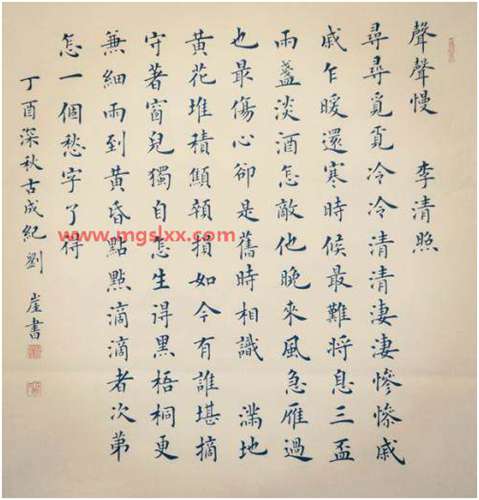 聲聲慢 李清照
尋尋覓覓冷冷清清淒淒慘慘戚
戚乍暖還寒時候最難將息三盃
兩盞淡酒怎敵他晚來風急雁過
也最傷心卻是舊時相識 滿地
黃花堆積顦顇損如今有誰堪摘
守著窗兒獨自怎生得黑梧桐更
兼細雨到黃昏點點滴滴者次第
怎一個愁字了得
丁酉深秋古成紀劉崖書
www.mgslxx.com